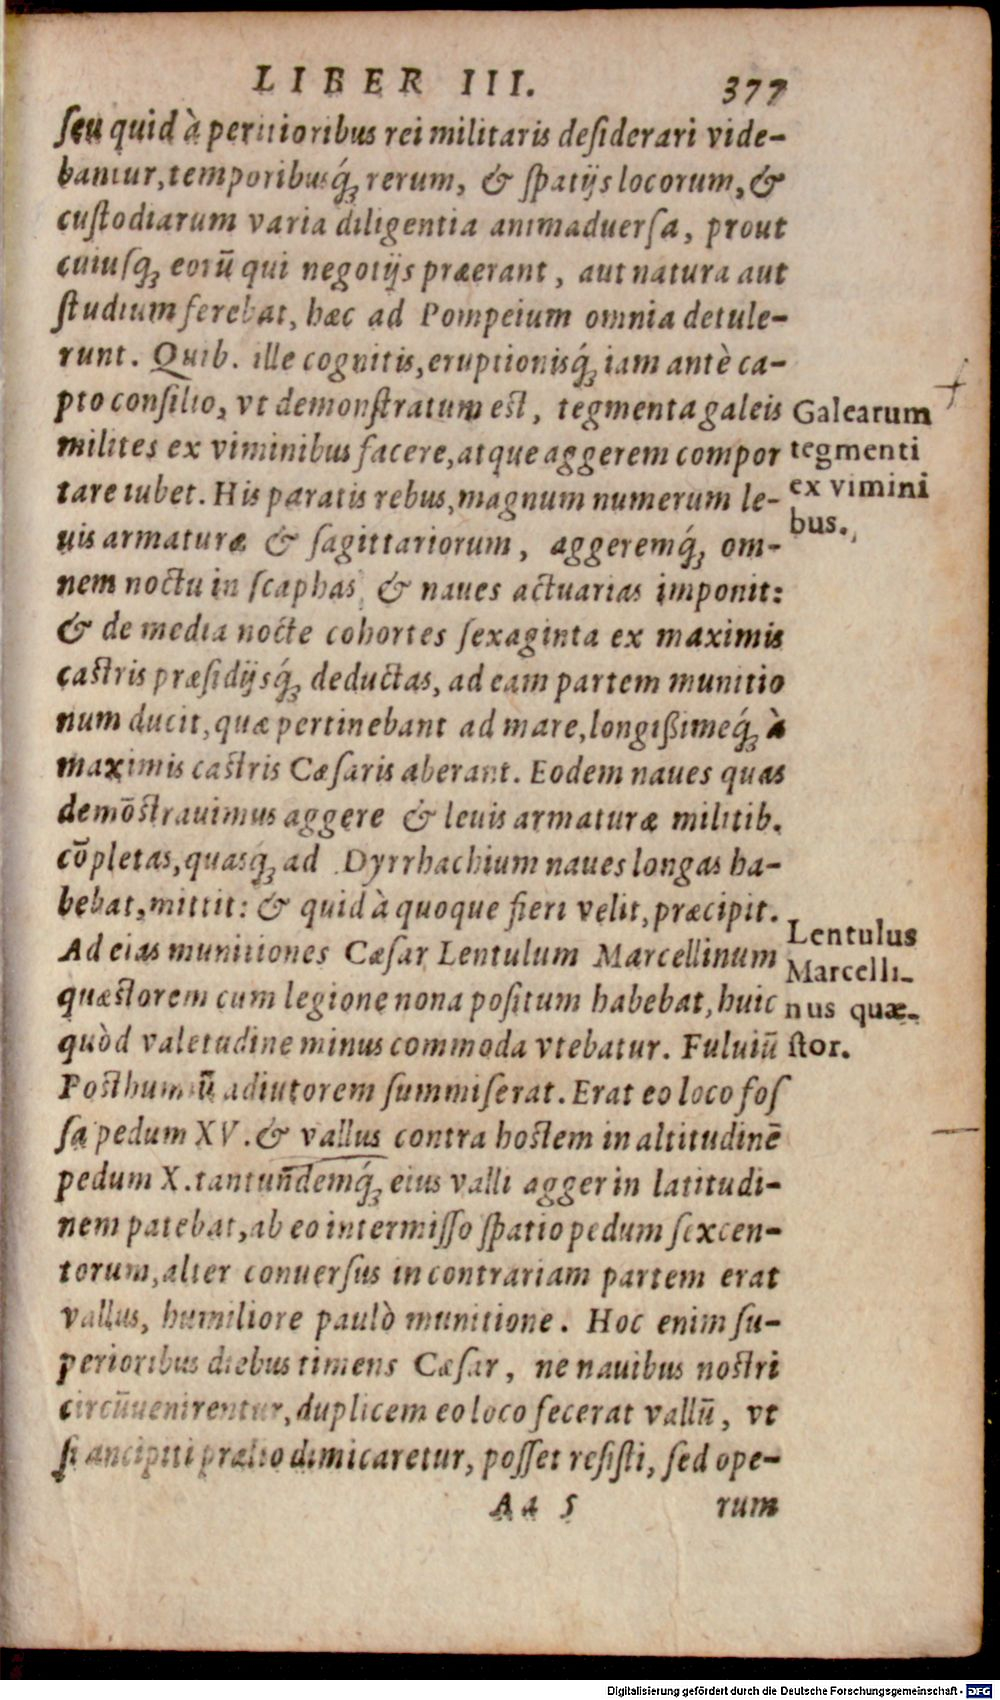 LIBER III. 377
ſeu quid à peritioribus rei militaris deſiderari vide-
bantur, temporibusq́; rerum, & ſpatijs locorum, &
cuſtodiarum varia diligentia animaduerſa, prout
cuiuſq; eorū qui negotijs præerant, aut natura aut
ſtudium ferebat, hæc ad Pompeium omnia detule-
runt. Quib. ille cognitis, eruptionisq́; iam antè ca-
pto conſilio, vt demonſtratum eſt, tegmenta galeis
milites ex viminibus facere, atque aggerem compor
tare iubet. His paratis rebus, magnum numerum le-
uis armaturæ & ſagittariorum, aggeremq́; om-
nem noctu in ſcaphas, & naues actuarias imponit:
& de media nocte cohortes ſexaginta ex maximis
caſtris præſidijsq́; deductas, ad eam partem munitio
num ducit, quæ pertinebant ad mare, longißimeq́; à
maximis caſtris Cæſaris aberant. Eodem naues quas
demōſtrauimus aggere & leuis armaturæ militib.
cōpletas, quasq́; ad Dyrrhachium naues longas ha-
bebat, mittit: & quid à quoque fieri velit, præcipit.
Ad eias munitiones Cæſar Lentulum Marcellinum
quæſtorem cum legione nona poſitum habebat, huic
quòd valetudine minus commoda vtebatur. Fuluiū
Poſthumiū adiutorem ſummiſerat. Erat eo loco foſ
ſa pedum XV. & vallus contra hoſtem in altitudinē
pedum X. tantundemq́; eius valli agger in latitudi-
nem patebat, ab eo intermiſſo ſpatio pedum ſexcen-
torum, alter conuerſus in contrariam partem erat
vallus, humiliore paulò munitione. Hoc enim ſu-
perioribus diebus timens Cæſar, ne nauibus noſtri
circūuenirentur, duplicem eo loco fecerat vallū, vt
ſi ancipiti prælio dimicaretur, poſſet reſiſti, ſed ope-
Aa 5 rum
Galearum
tegmenti
ex vimini
bus.
Lentulus
Marcelli-
nus quæ-
ſtor.
Digitalisierung gefördert durch die Deutsche Forschungsgemeinschaft - DFG